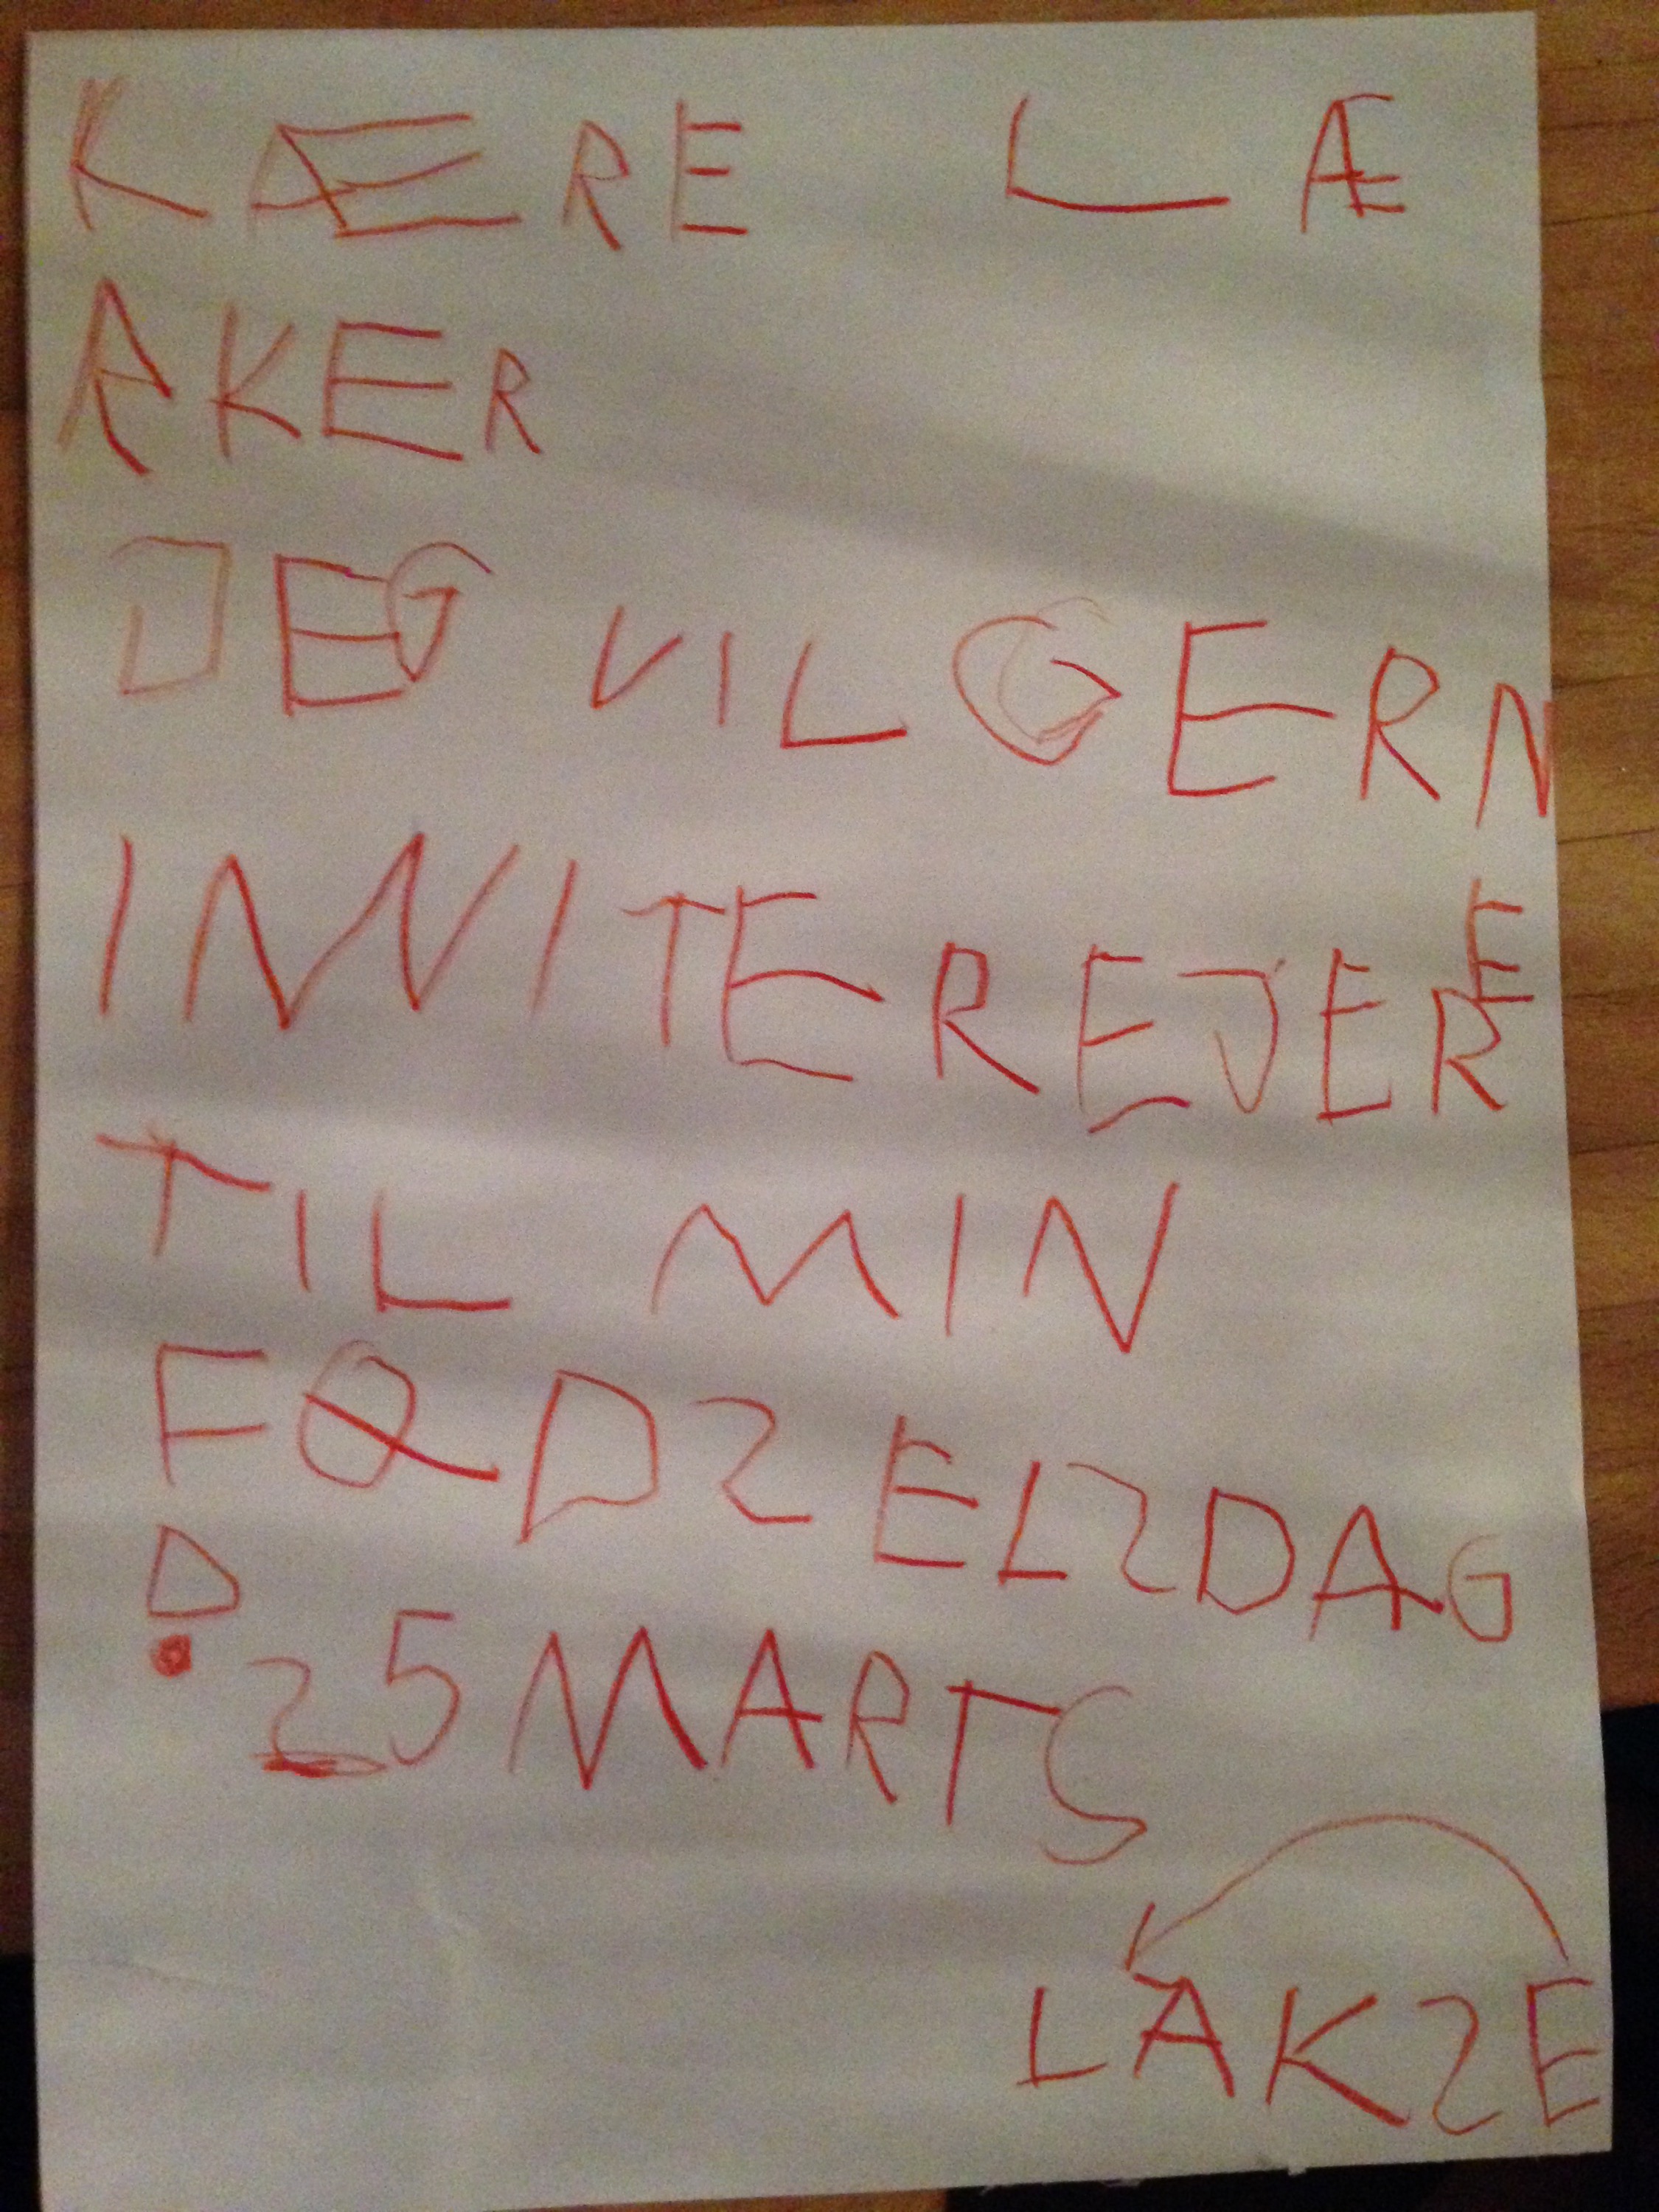 KÆRE LÆ
RKER
JEG VIL GERN
E
INVITEREJER
TIL MIN
FØDSELSDAG
D.
25 MARTS
LAKSE